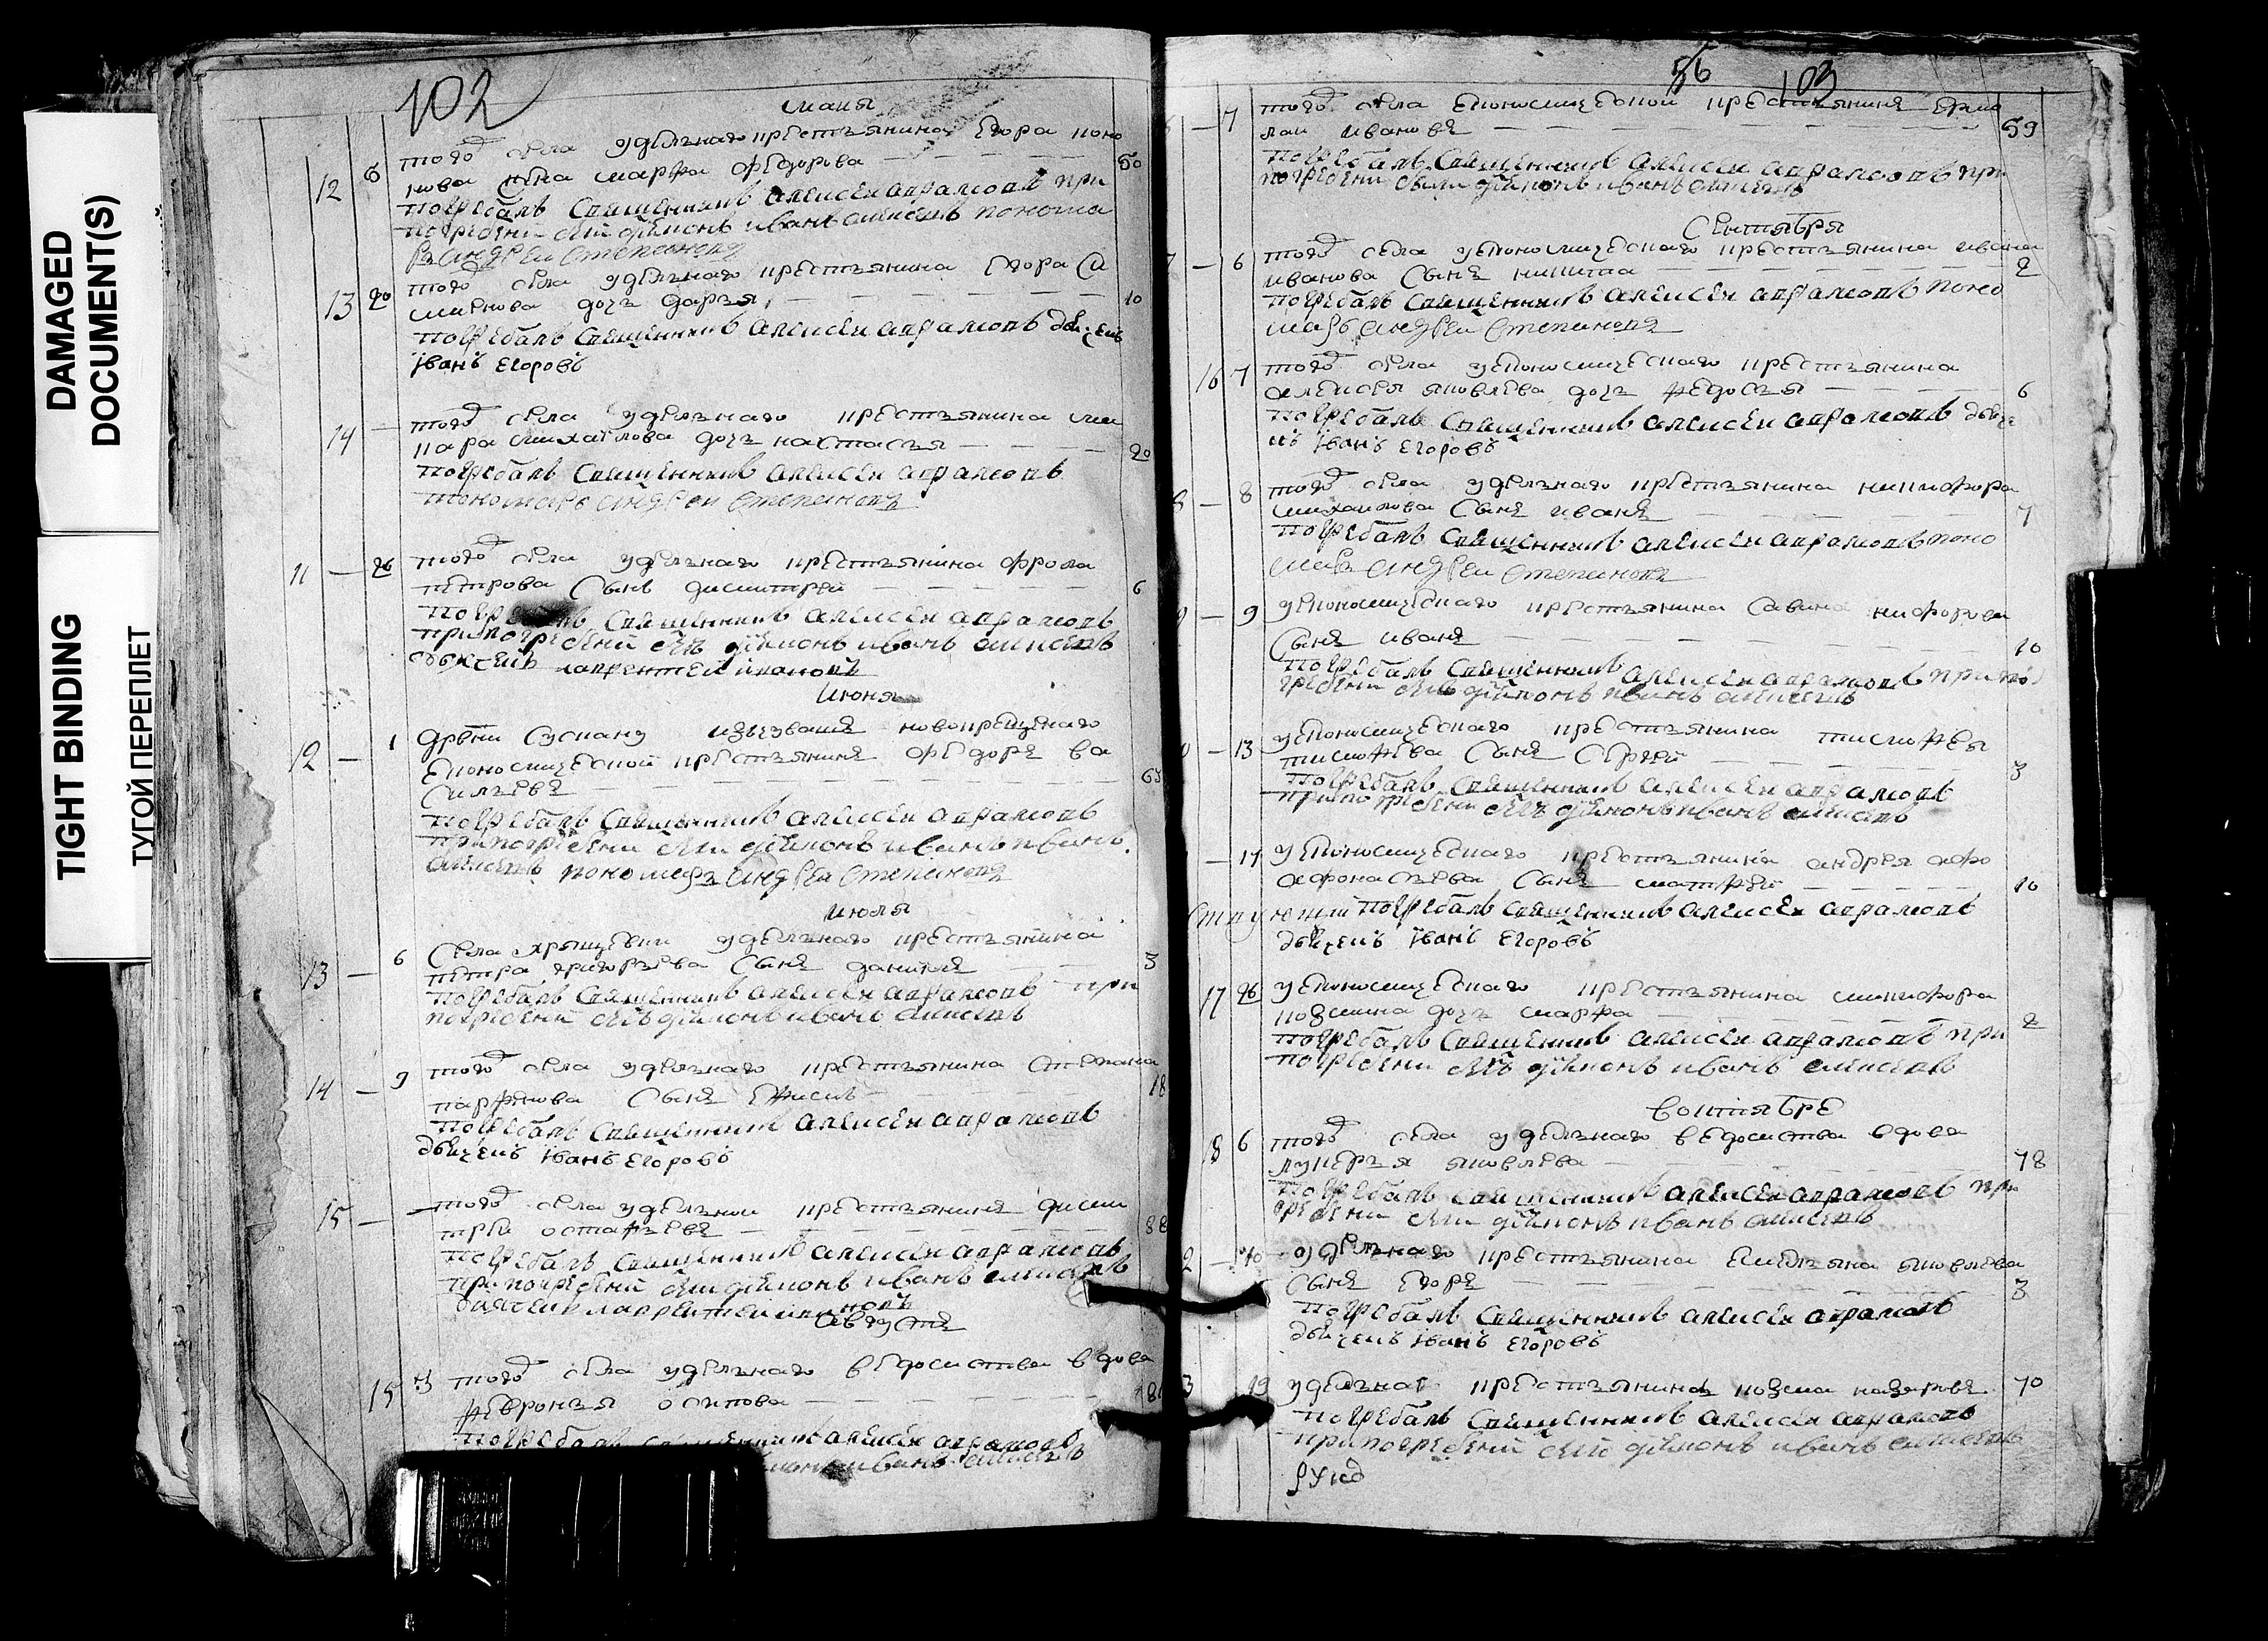 DAMAGED
DOCUMENT(S)
TIGHT BINDING
ТУГОЙ ПЕРЕПЛЕТ
102
маия
12 5 того села удельнаго крестьянина Егора
нова жена марфа федорова 50
погребалъ Священникъ алексеи аврамовъ при
погребени был диаконъ иванъ алексеевъ понома
рь андреи Степановъ
13 20 того села удельнаго крестьянина Егора
доч дарья 10
погребалъ Священникъ алексеи аврамовъ дьячекъ
іванъ Егоровъ
14 того села удельнаго крестьянина ма
кара михаилова доч настасья 20
погребалъ Священникъ алексеи аврамовъ
пономарь андреи Степановъ
11 26 того села удельнаго крестьянина фрола
петрова Сынъ дмитреи 6
Священникъ алексеи аврамовъ
при погребени диаконъ иванъ алексеевъ
дьячекъ лаврентеи ивановъ
июня
12 1 новокрещенаго
Економической крестьянинъ федоръ ва
Сильевъ
погребалъ Священникъ алексеи аврамовъ
при погребени диаконъ иванъ иванъ
алексеевъ пономарь андреи Степановъ
июля
13 6 Села удельнаго крестьянина
петра григорьева Сынъ данила 3
погребалъ Священникъ алексеи аврамовъ при
погребени диаконъ иванъ алексеевъ
14 9 того села удельнаго крестьянина Степана
парфенова Сынъ 18
погребалъ Священникъ алексеи аврамовъ
дьячекъ іванъ Егоровъ
15 того села удельнои крестьянинъ дми
треи остафьевъ
погребалъ Священникъ алексеи аврамовъ
при погребени диаконъ иванъ алексеевъ
дьячекъ лаврентеи ивановъ
августа
15 того села удельнаго ведомства вдова
февронья осипова
погребалъ Священникъ алексеи аврамовъ
иванъ алексеевъ
56 103
7 того села Економической крестьянинъ Ермо
лаи ивановъ 59
погребалъ Священникъ алексеи аврамовъ при
погребени были диаконъ иванъ алексеевъ
Сентября
6 того села экономическаго крестьянина ивана
иванова Сынъ никита 2
погребалъ Священникъ алексеи аврамовъ поно
марь андреи Степановъ
16 7 того села экономическаго крестьянина
алексея яковлева доч федосья 6
погребалъ Священникъ алексеи аврамовъ дьяче
къ іванъ Егоровъ
8 того села удельнаго крестьянина никифора
михаилова Сынъ иванъ 7
погребалъ Священникъ алексеи аврамовъ поно
марь андреи Степановъ
9 экономическаго крестьянина Савина
Сынъ иванъ 10
погребалъ Священникъ алексеи аврамовъ при по
гребени диаконъ иванъ алексеевъ
13 экономическаго крестьянина тимофея
тимофеева Сынъ Сергеи 3
погребалъ Священникъ алексеи аврамовъ
при погребени диаконъ иванъ алексеевъ
экономическаго крестьянина андрея афо
афонасьева Сынъ матфеи 10
погребалъ Священникъ алексеи аврамовъ
дьячекъ іванъ Егоровъ
17 26 экономическаго крестьянина
козмина доч марфа 2
погребалъ Священникъ алексеи аврамовъ при
погребени диаконъ иванъ алексеевъ
воктябре
18 6 того села удельнаго ведомства вдова
лукерья яковлева 78
погребалъ Священникъ алексеи аврамовъ при
гребени диаконъ иванъ алексеевъ
удельнаго крестьянина Емельяна яковлева
Сынъ Егоръ 3
погребалъ Священникъ алексеи аврамовъ
дьячекъ іванъ Егоровъ
19 удельнаг крестьянинъ козма назарьевъ 70
погребалъ Священникъ алексеи аврамовъ
при погребени диаконъ иванъ алексеевъ